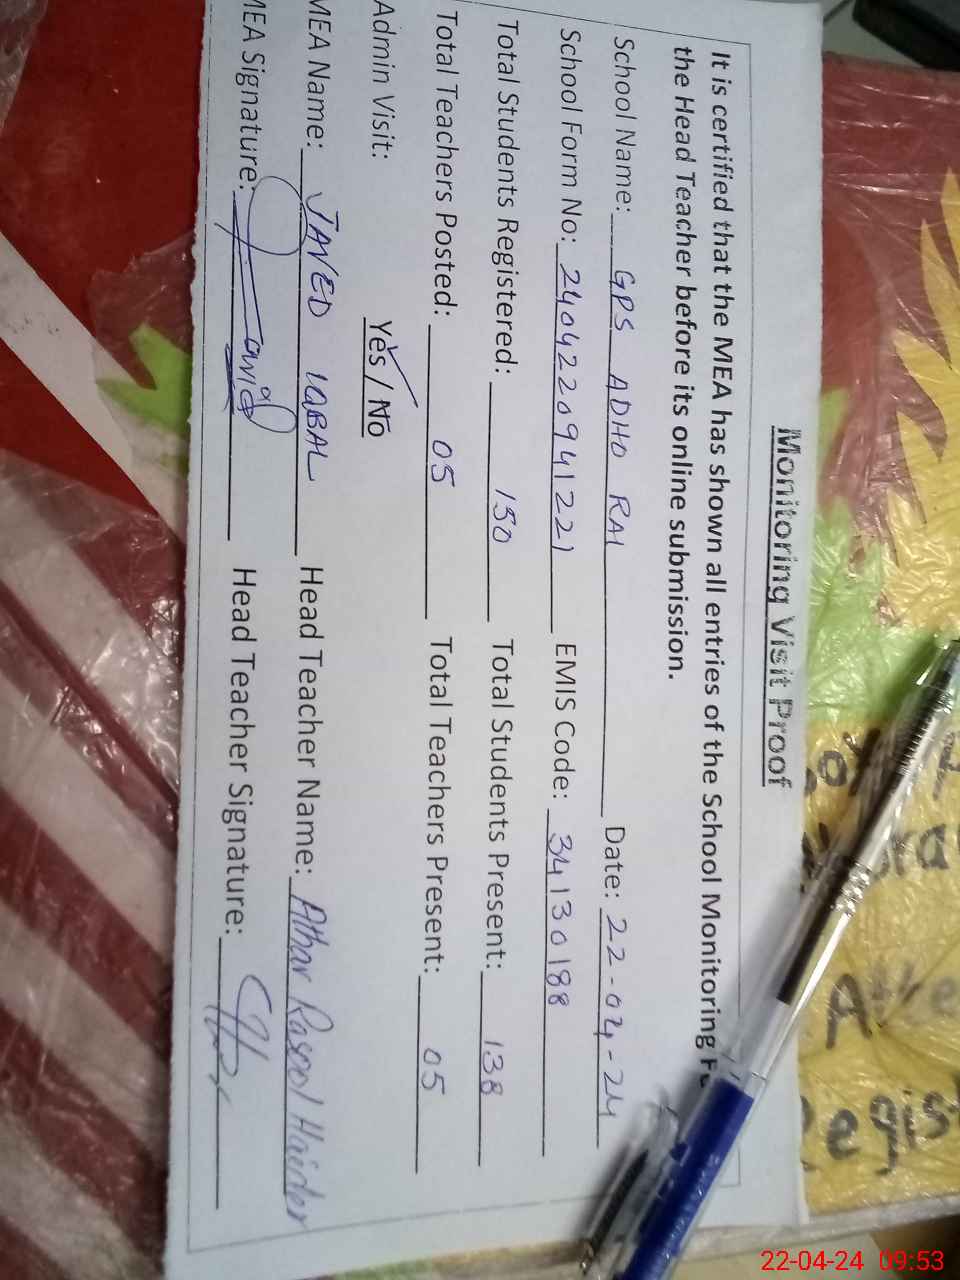 Monitoring Visit Proof
It is certified that the MEA has shown all entries of the School Monitoring
the Head Teacher before its online submission.
School Name: GPS ADHO RAI Date: 22-04-24
School Form No: 2404220941221 EMIS Code: 34130188
Total Students Registered: 150 Total Students Present: 138
Total Teachers Posted: 05 Total Teachers Present: 05
Admin Visit: Yes / No
MEA Name: JAVED IQBAL Head Teacher Name: Athar Rasool Haider
MEA Signature: Javid Head Teacher Signature:
Atte
Regist
22-04-24 09:53